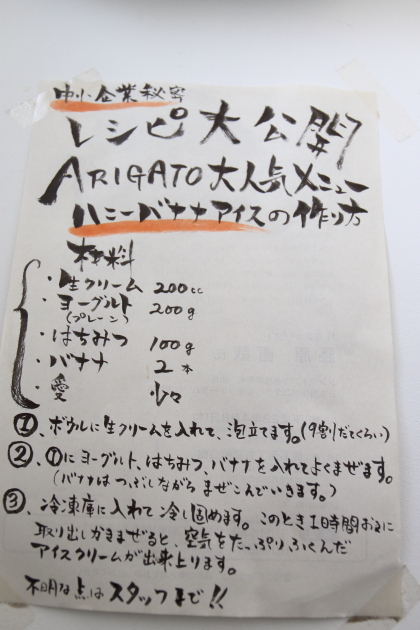 中小企業秘密
レシピ大公開
ARIGATO大人気メニュー
ハニーバナナアイスの作り方
材料
・生クリーム 200cc
・ヨーグルト 200g
(プレーン)
・はちみつ 100g
・バナナ 2本
・愛 少々
①、ボウルに生クリームを入れて、泡立てます。(9割だてくらい)
②、①にヨーグルト、はちみつ、バナナを入れてよくまぜます。
(バナナはつぶしながらまぜこんでいきます。)
③、冷凍庫に入れて冷し固めます。このとき1時間おきに
取り出しかきまぜると、空気をたっぷりふくんだ
アイスクリームが出来上ります。
不明な点はスタッフまで!!